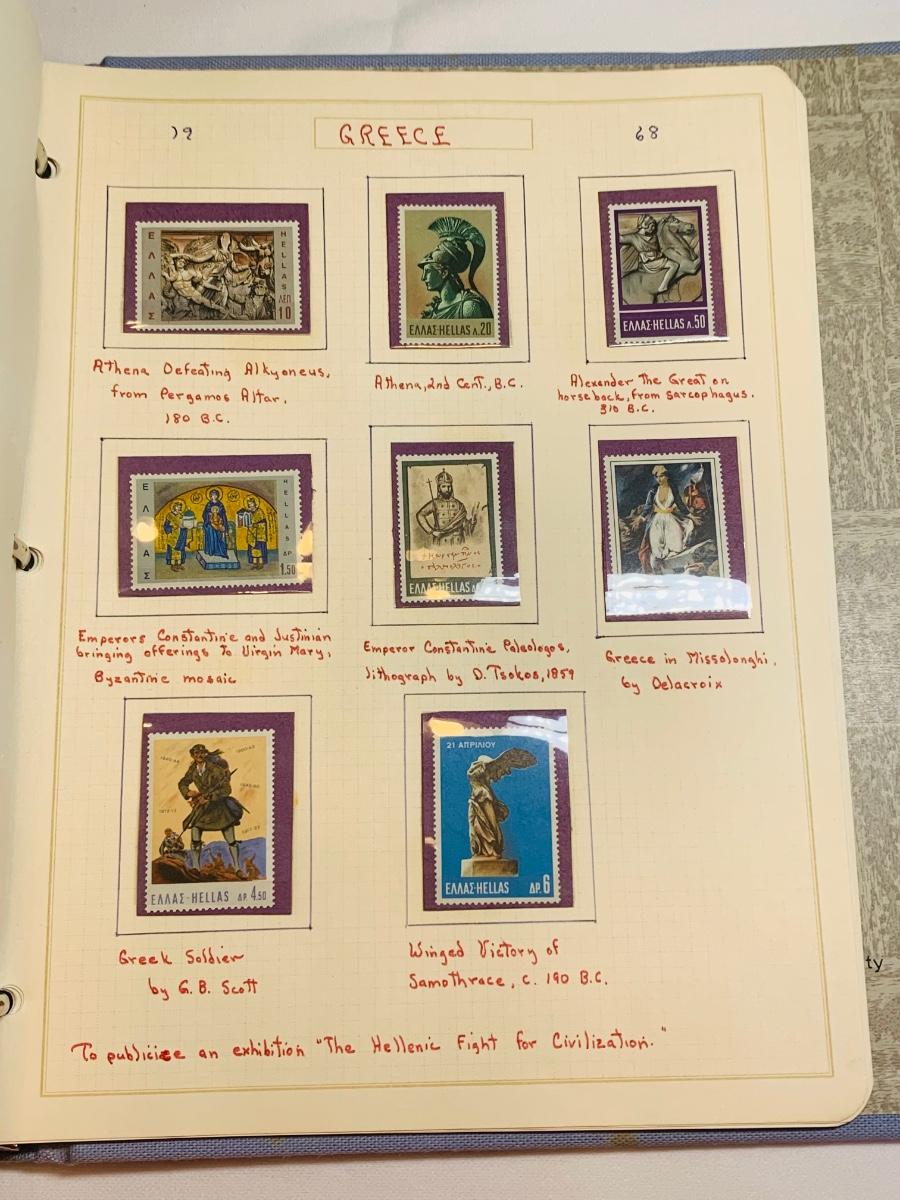 19
GREECE
68
ΕΛΛΑΣ
HELLAS
ΛΕΠ
10
ΕΛΛΑΣ-HELLAS Λ.20
ΕΛΛΑΣ-HELLAS Λ.50
Athena Defeating Alkyoneus,
from Pergamos Altar.
180 B.C.
Athena, 2nd Cent., B.C.
Alexander The Great on
horseback, from sarcophagus.
310 B.C.
ΕΛΛΑΣ
HELLAS
ΔΡ
1.50
ΕΛΛΑΣ-HELLAS
Emperors Constantine and Justinian
bringing offerings to Virgin Mary,
Byzantine mosaic
Emperor Constantine Paleologos,
lithograph by D. Tsokos, 1859
Greece in Missolonghi,
by Delacroix
ΕΛΛΑΣ-HELLAS ΔΡ. 4.50
21 ΑΠΡΙΛΙΟΥ
ΕΛΛΑΣ-HELLAS ΔΡ. 6
Greek Soldier
by G. B. Scott
Winged Victory of
Samothrace, c. 190 B.C.
To publicize an exhibition "The Hellenic Fight for Civilization."
ty